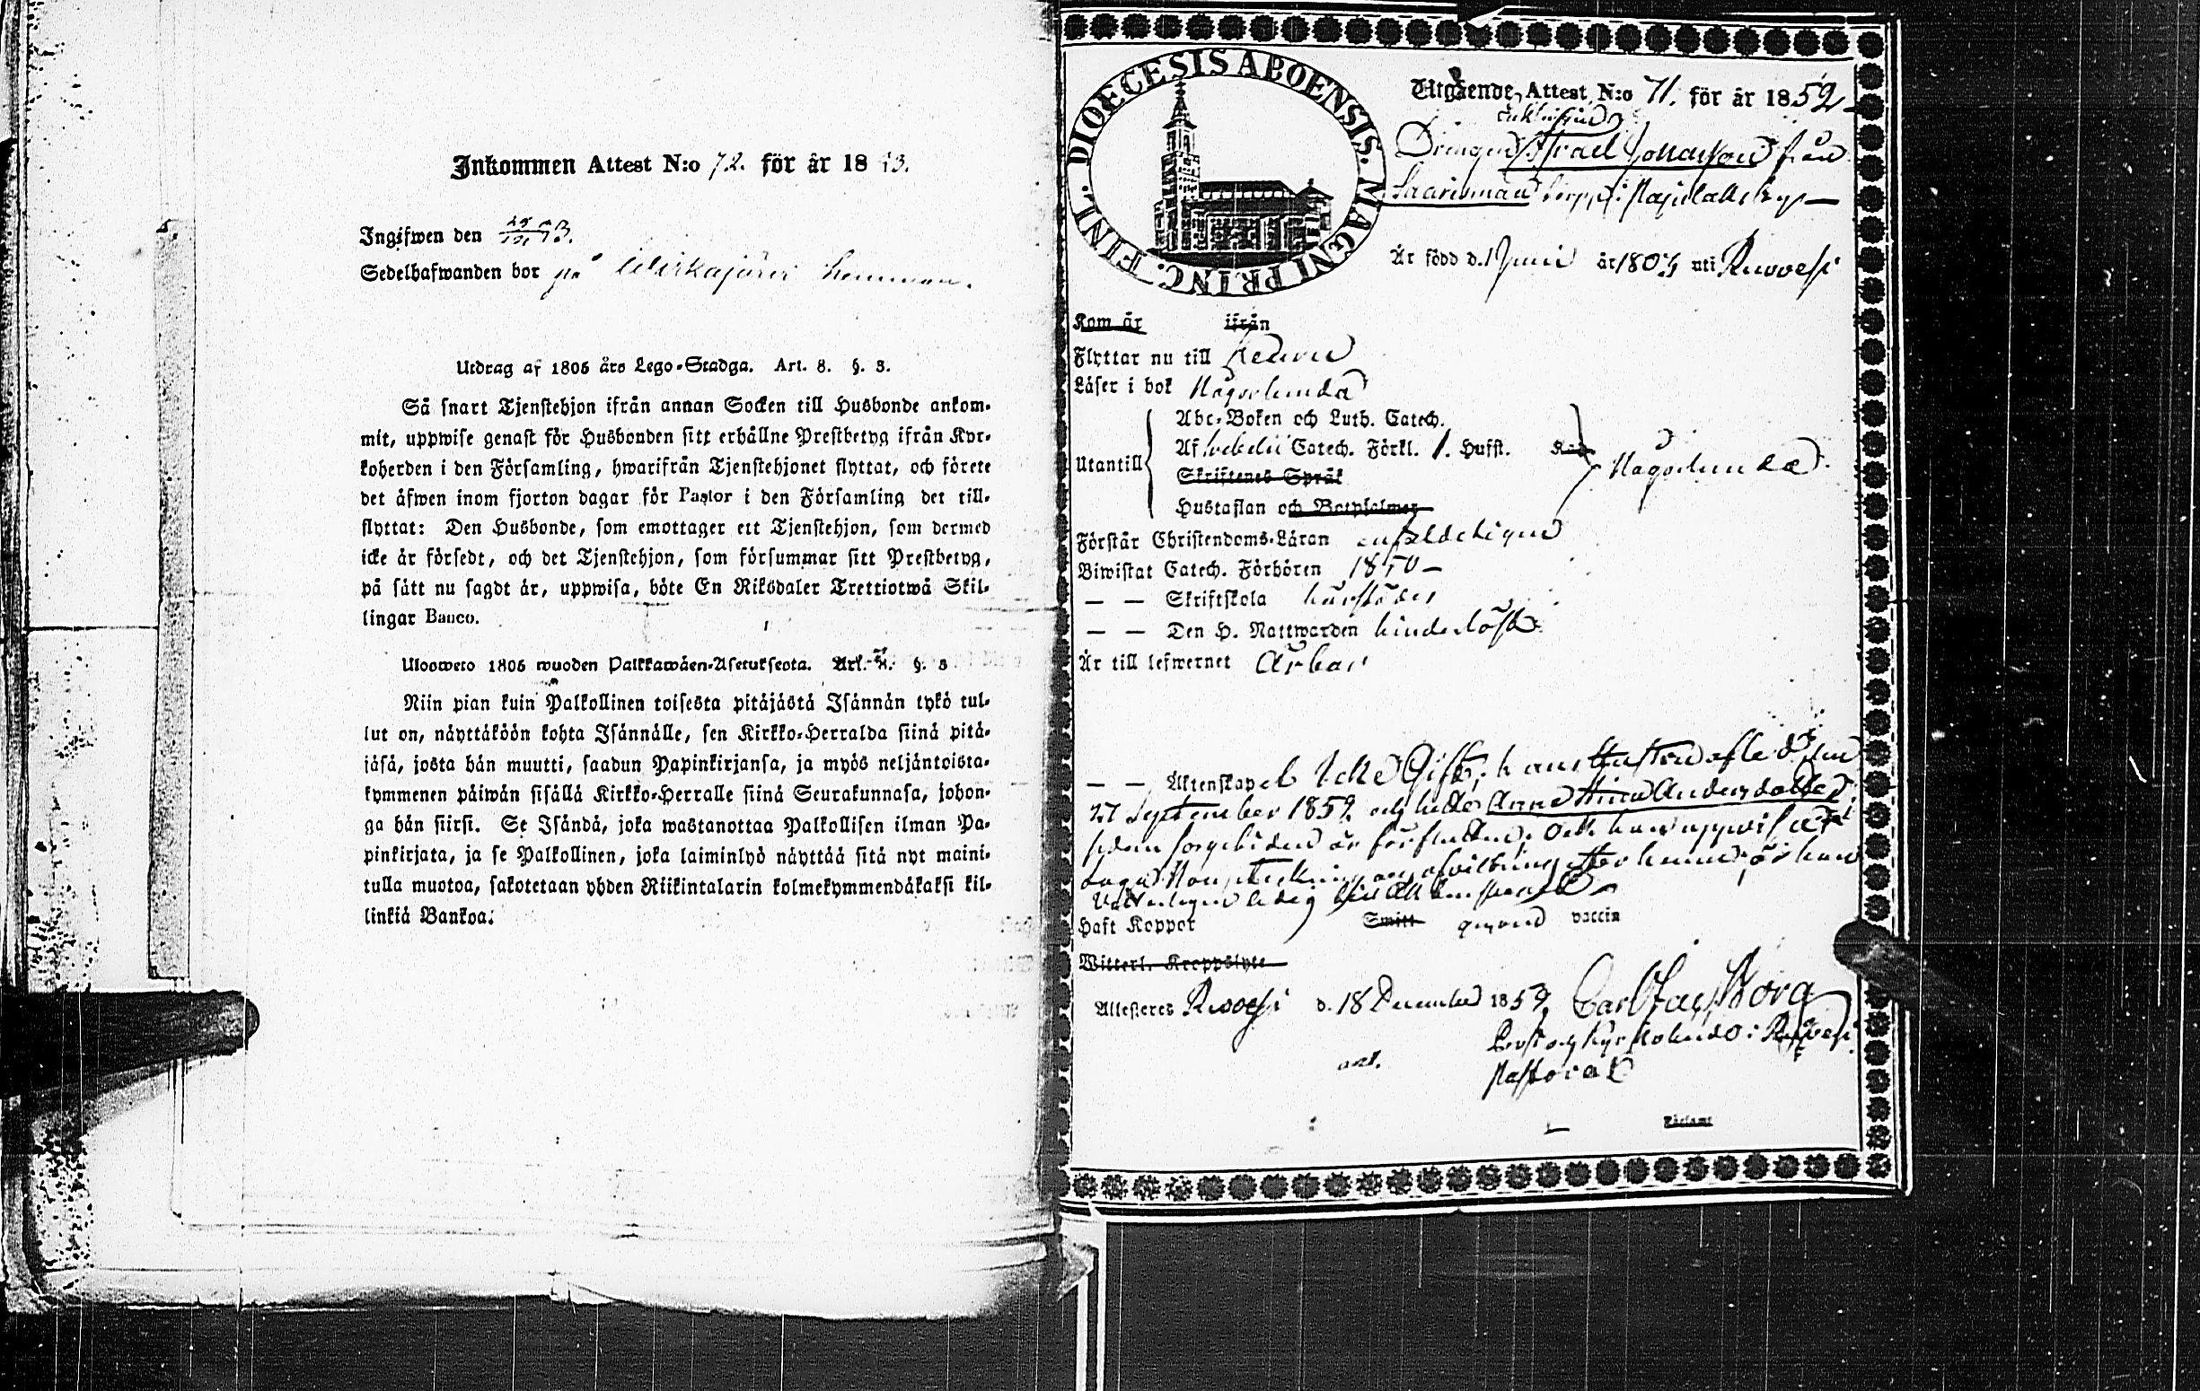 Inkommen Attest N:o 72. för år 18 53.
Ingifwen den
Sedelhafwanden bor på hemman.
Utdrag af 1805 års Lego-Stadga. Art. 8. §. 3.
Så snart Tjenstehjon ifrån annan Socken till Husbonde ankom-
mit, uppwise genast för Husbonden sitt erhållne Prestbetyg ifrån Kyr-
koherden i den Församling, hwarifrån Tjenstehjonet flyttat, och förete
det äfwen inom fjorton dagar för Pastor i den Församling det till-
flyttat: Den Husbonde, som emottager ett Tjenstehjon, som dermed
icke är försedt, och det Tjenstehjon, som försummar sitt Prestbetyg,
på sätt nu sagdt är, uppwisa, böte En Riksdaler Trettiotwå Skil-
lingar Banco.
Ulosweto 1805 wuoden Palkkawäen-Asetuksesta. Art. 8. §. 3
Niin pian kuin Palkollinen toisesta pitäjästä Isännän tykö tul-
lut on, näyttäköön kohta Isännälle, sen Kirkko-Herralda siinä pitä-
jäsä, josta hän muutti, saadun Papinkirjansa, ja myös neljäntoista-
kymmenen päiwän sisällä Kirkko-Herralle siinä Seurakunnasa, johon-
ga hän siirsi. Se Isändä, joka wastanottaa Palkollisen ilman Pa-
pinkirjata, ja se Palkollinen, joka laiminlyö näyttää sitä nyt maini-
tulla muotoa, sakotetaan yhden Riikintalarin kolmekymmendäkaksi kil-
linkiä Bankoa.
DIOECESIS ABOENSIS. MAGNI PRINC. FINL.
Utgående Attest N:o 71. för år 1852
Enklingen
Drängen Israel Jonasson från
Saarisman torpp i by
Är född d. 1 Juni år 1805 uti Ruovesi
Kom år ifrån
Flyttar nu till Keuru
Läser i bok Någorlunda
Abc-Boken och Luth. Catech.
Utantill Af Svebelii Catech. Förkl. 1. Hufst. Någorlunda
Skriftenes Språk
Hustaflan och Botpsalmer
Förstår Christendoms-Läran enfaldeligen
Biwistat Catech. Förhören 1850
— — Skriftskola härstädes
— — Den H. Nattwarden hinderlöst
Är till lefwernet Ärbar
— — Äktenskapet Icke Gift; hans Hustru afled den
27 September 1852 och hette Anna Stina Andersdotter,
sedan sorgetiden är förfluten, och han uppvisat
laga Bouptecknings och afvittring efter henne, är han
Vederligen ledig till Äktenskap
Haft Koppor Smitt genom vaccin
Witterl. Kroppslyte
Attesteras Ruovesi d. 18 December 1852 Carl Borg
Prost och Kyrkoherde i Ruovesi
Pastorat